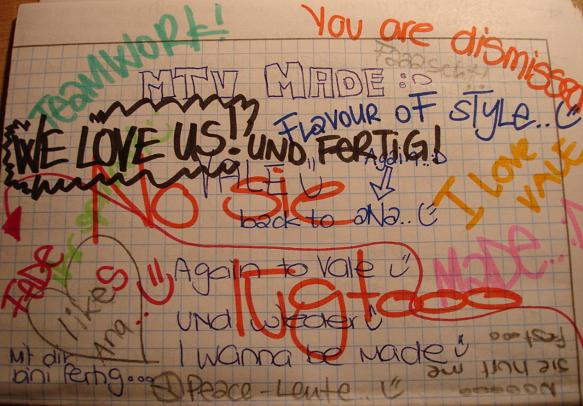 You are dismissed
TEAMWORK!
MTV MADE :D
FLAVOUR OF STYLE..
WE LOVE US!? UND FERTIG!
Again..:D
VALE
I LOVE VALE
No sie
back to aNa..
MADE..
Again to Vale
lügtooo
I like Ana..
und wieder
I wanna be made
Mit dir bini fertig...
Peace-Leute..
Nooooo
sie hurt me
fest